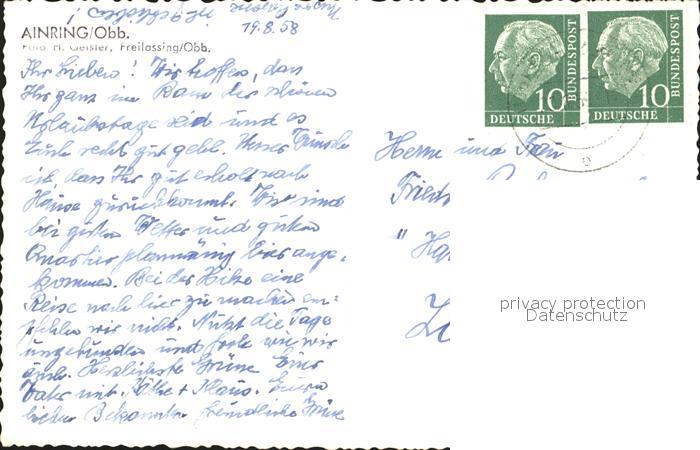 AINRING/Obb.
Foto H. Geisler, Freilassing/Obb.
19.8.58
Ihr Lieben! Wir hoffen, dass
Ihr ganz im Bann der schönen
Urlaubstage seid und es
Euch recht gut geht. Unser Wunsch
ist, dass Ihr gut erholt nach
Hause zurückkommt. Wir sind
bei gutem Wetter und gutem
Quartier planmäßig hier ange-
kommen. Bei der Hitze eine
Reise nach hier zu machen em-
pfehlen wir nicht. Nützt die Tage
ungebunden und froh wie wir
auch. Herzlichste Grüße Euer
Vater mit Käthe + Klaus. Euren
lieben Bekannten freundliche Grüße
10
DEUTSCHE
BUNDESPOST
10
DEUTSCHE
BUNDESPOST
Herrn und Frau
Friedr
" Ha
privacy protection
Datenschutz